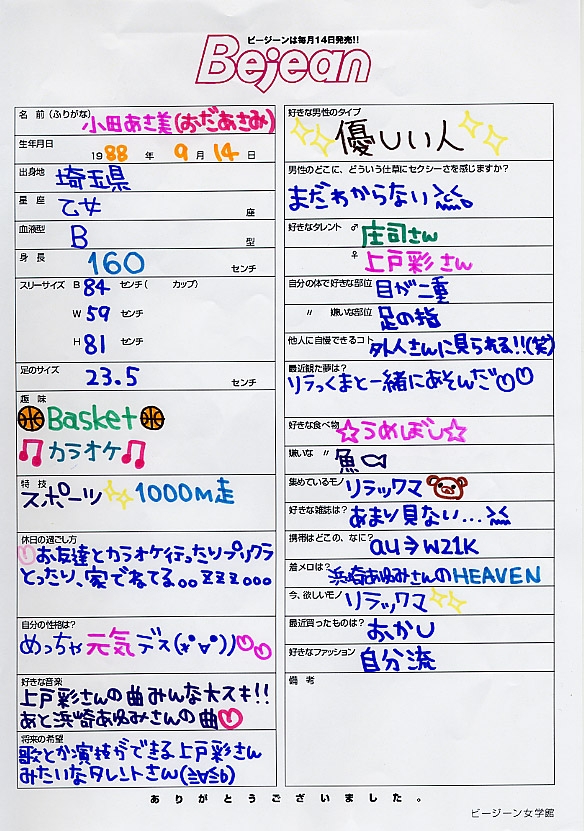 ビージーンは毎月14日発売!!
Bejean
名 前(ふりがな) 小田あさ美(おだあさみ)
生年月日 1988年 9月14日
出身地 埼玉県
星 座 乙女 座
血液型 B 型
身 長 160 センチ
スリーサイズ B 84 センチ( カップ)
W 59 センチ
H 81 センチ
足のサイズ 23.5 センチ
趣 味
Basket
カラオケ
特 技
スポーツ 1000M走
休日の過ごし方
お友達とカラオケ行ったりプリクラ
とったり、家でねてる。。zzz...
自分の性格は?
めっちゃ元気デス(*°∀°)ノ♡♡
好きな音楽
上戸彩さんの曲みんな大スキ!!
あと浜崎あゆみさんの曲♡
将来の希望
歌とか演技ができる上戸彩さん
みたいなタレントさん(≧∀≦b)
好きな男性のタイプ
優しい人
男性のどこに、どういう仕草にセクシーさを感じますか?
まだわからない
好きなタレント ♂ 庄司さん
♀ 上戸彩さん
自分の体で好きな部位 目が二重
〃 嫌いな部位 足の指
他人に自慢できるコト 外人さんに見られる!!(笑)
最近観た夢は?
リラっくまと一緒にあそんだ♡♡
好きな食べ物 ☆うめぼし☆
嫌いな 〃 魚
集めているモノ リラックマ
好きな雑誌は? あまり見ない...
携帯はどこの、なに? au→W21K
着メロは? 浜崎あゆみさんのHEAVEN
今、欲しいモノ リラックマ
最近買ったものは? おかし
好きなファッション 自分流
備 考
ありがとうございました。
ビージーン女学館